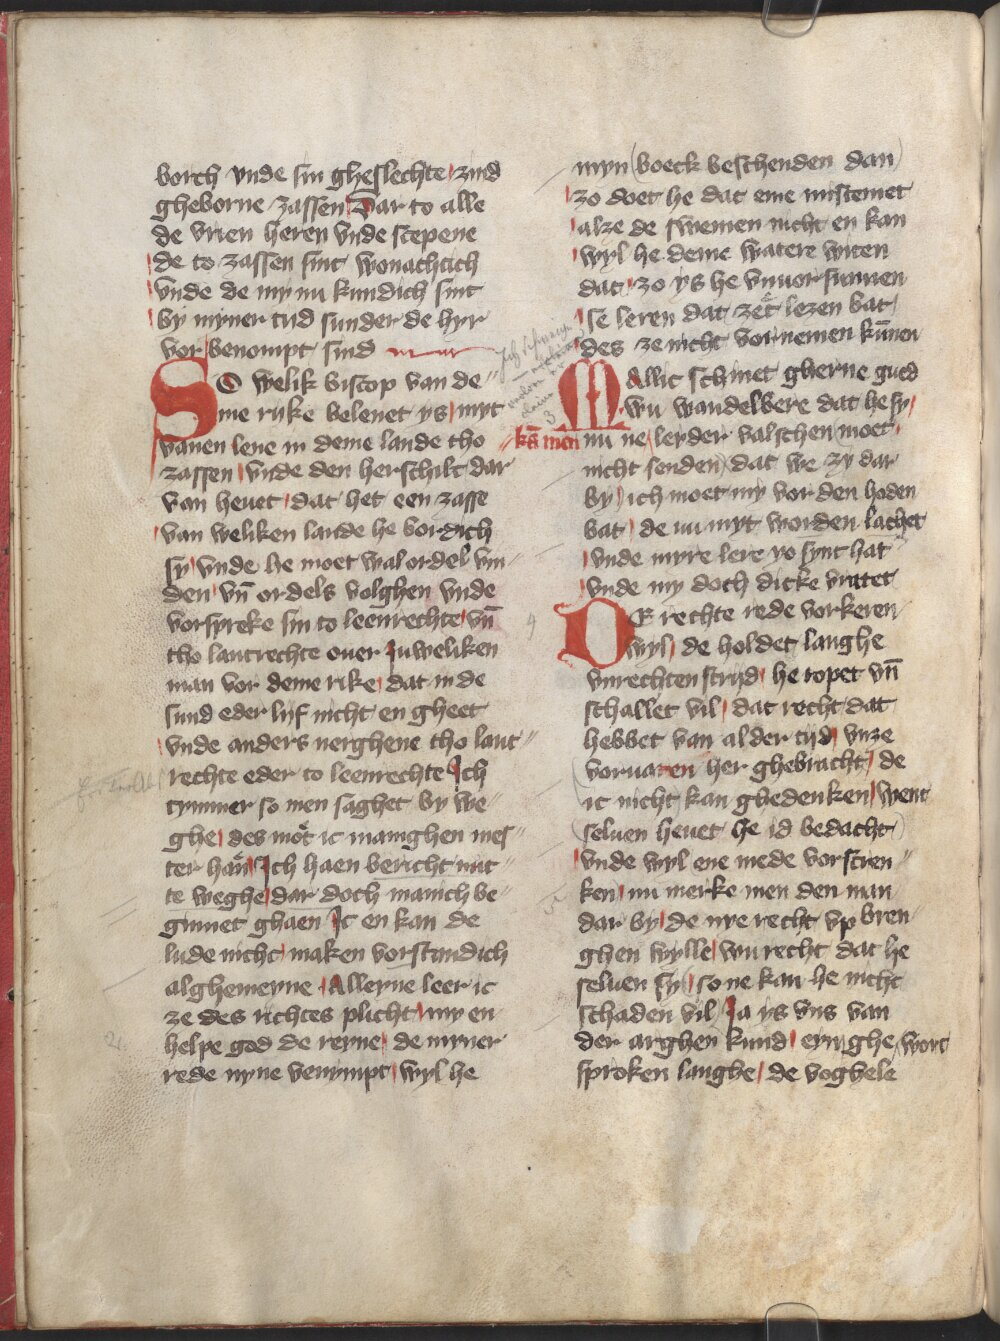 borch vnde sin gheslechte zind
gheborne zassen Dar to alle
de vrien heren vnde scepene
de to zassen sint wonachtich
vnde de my nu kundich sint
by myner tyd sunder de hyr
vor benompt sind
SO welik biscop van de
me ryke belenet ys myt
vanen lene in deme lande tho
zassen vnde den herschilt dar
van heuet dat het een zasse
van weliken lande he bordich
sy vnde he moet wal ordel vin
den vn̄ ordels volghen vnde
vorspreke sin to leenrechte vn̄
tho lantrechte ouer Juweliken
man vor deme rike dat in de
sund eder lyf nicht en gheet
vnde anders nerghene tho lant
rechte eder to leenrechte Ich
tymmer so men saghet by we
ghe des mot ic manighen mes
ter han Ich haen bericht nut
te weghe dar doch manich be
ginnet ghaen Ic en kan de
lude nicht maken vorstandich
alghemeyne Alleyne leer ic
ze des richtes plicht my en
helpe god de reyne de myner
rede nyne venympt wyl he
myn boeck beschenden dan
zo doet he dat eme mistemet
alze de swemen nicht en kan
wyl he deme watere witen
dat zo ys he vnuorsunnen
se leren dat zet lezen bat
des ze nicht vornemen kūnen
MAllic schinet gherne gued
wu wandelbere dat he sy
kā men nu ne leyder valschen moet
nicht senden dat we zy dar
by ich moet my vor den hoden
bat de nu myt worden lachet
vnde myre lere yo synt hat
vnde my doch dicke vratet
DE rechte rede vorkeren
wyl de holdet langhe
vnrechten stryd he ropet vn̄
schallet vil dat recht dat
hebbet van alder tyd vnze
voruaren her ghebracht de
ic nicht kan ghedenken went
seluen heuet he id bedacht
vnde wyl ene mede vorstren
ken nu merke men den man
dar by de nye recht vp bren
ghen wylle wu recht dat he
seluen sy so ne kan he nicht
schaden vil Ja ys vns van
der arghen kund eyn ghe wort
sproken langhe de voghele